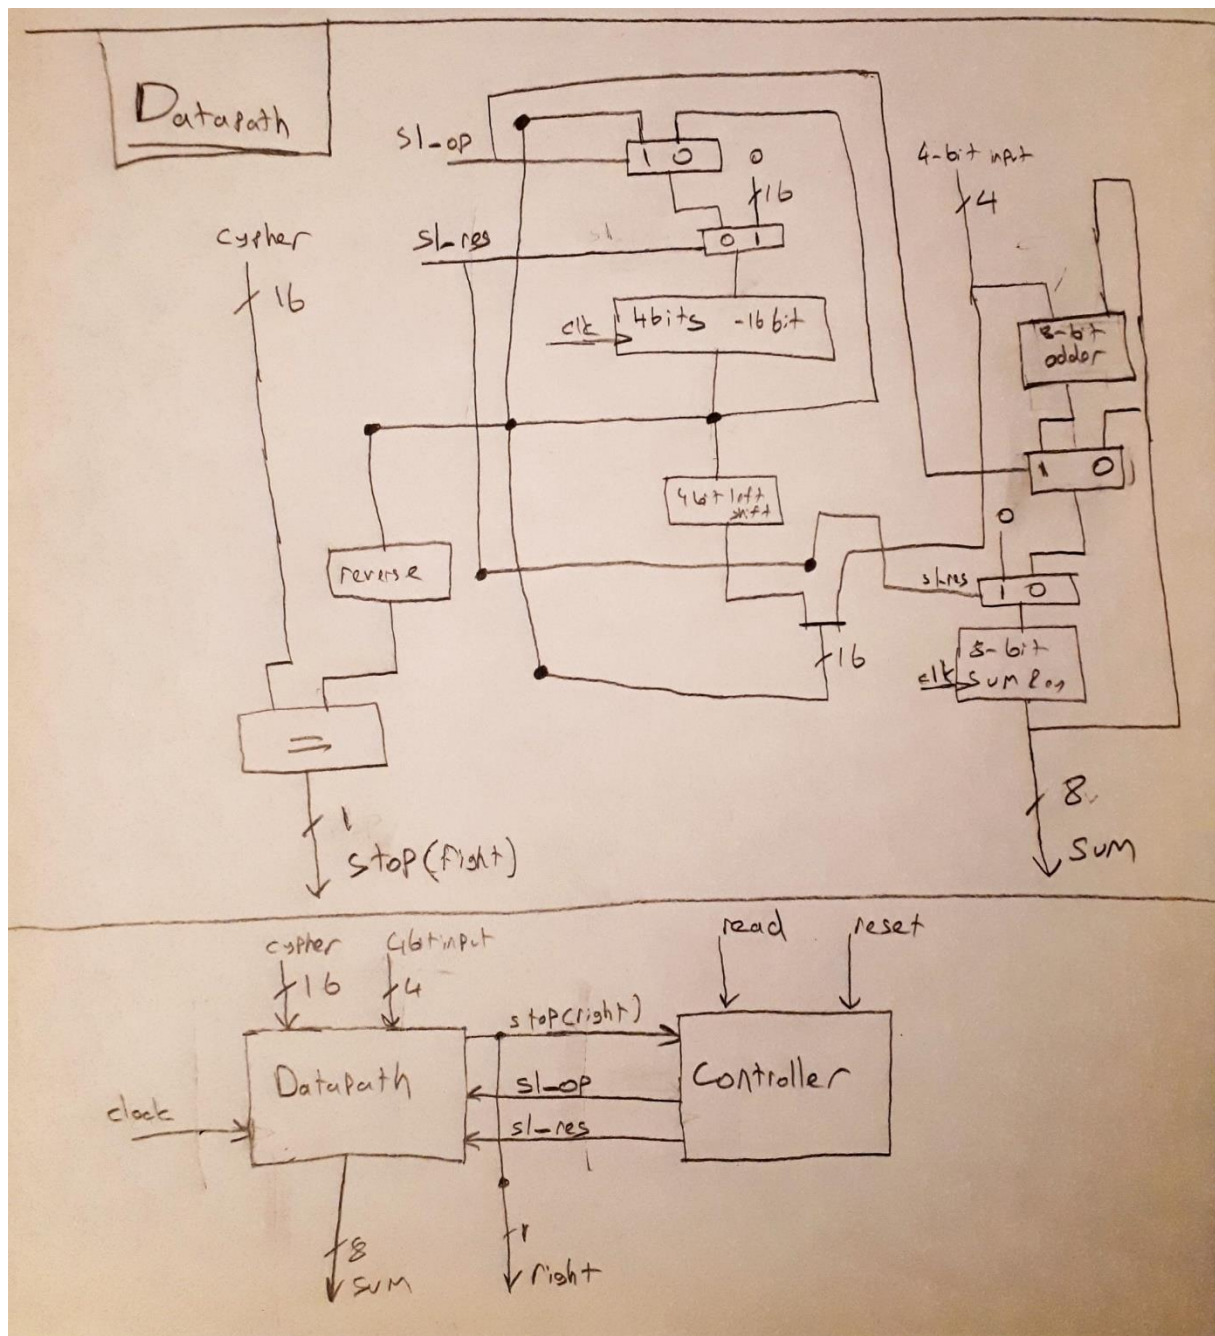 Datapath
sl_op
1 0
0
16
4-bit input
4
cypher
16
sl_res
sl
0 1
clk
4bits -16 bit
8-bit
adder
1 0
4bit left
shift
reverse
0
sl_res
1 0
16
8-bit
clk
sum Reg
=
1
stop(right)
8
sum
cypher
4bit input
read
reset
16
4
stop(right)
Datapath
Controller
sl_op
clock
sl_res
1
8
sum
1
right